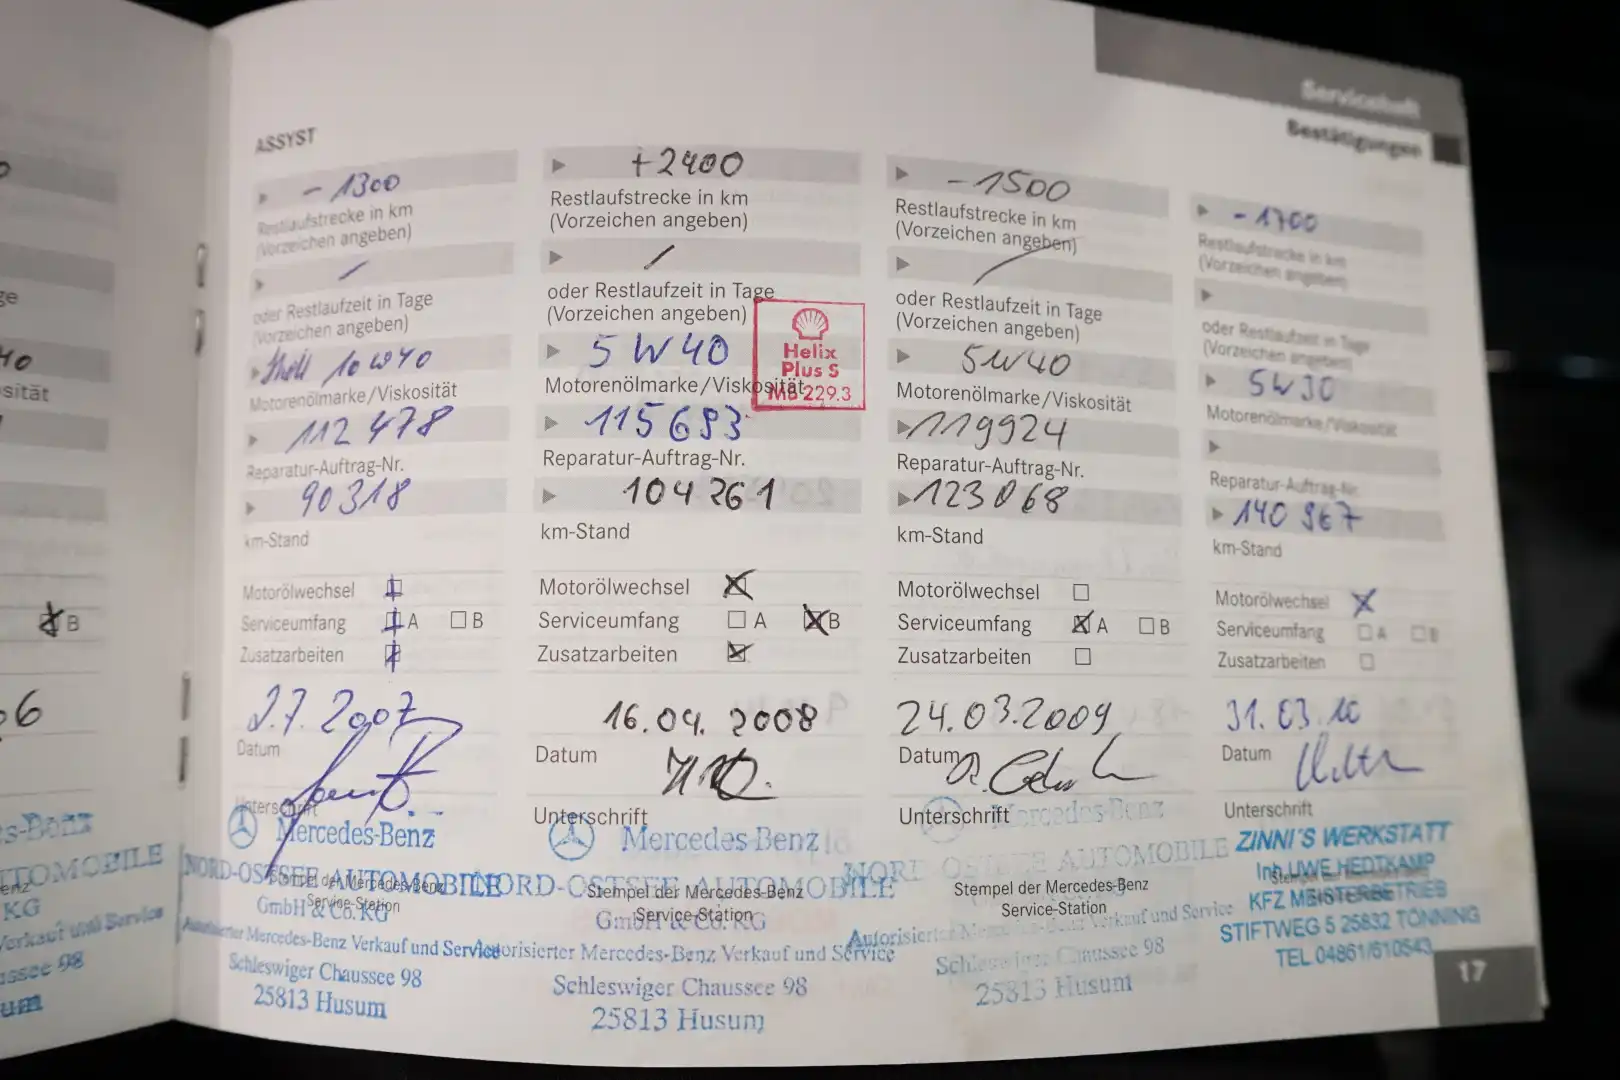 Serviceheft
Bestätigungen
ASSYST
- 1300
Restlaufstrecke in km
(Vorzeichen angeben)
/
oder Restlaufzeit in Tage
(Vorzeichen angeben)
Shell 10W40
Motorenölmarke/Viskosität
112 478
Reparatur-Auftrag-Nr.
90318
km-Stand
Motorölwechsel
Serviceumfang A B
Zusatzarbeiten
2.7.2007
Datum
Unterschrift
Mercedes-Benz
NORD-OSTSEE AUTOMOBILE
GmbH & Co. KG
Stempel der Mercedes-Benz
Service-Station
Autorisierter Mercedes-Benz Verkauf und Service
Schleswiger Chaussee 98
25813 Husum
+2400
Restlaufstrecke in km
(Vorzeichen angeben)
/
oder Restlaufzeit in Tage
(Vorzeichen angeben)
5W40
Helix
Plus S
MB 229.3
Motorenölmarke/Viskosität
115693
Reparatur-Auftrag-Nr.
104261
km-Stand
Motorölwechsel
Serviceumfang A B
Zusatzarbeiten
16.04.2008
Datum
Unterschrift
Mercedes-Benz
NORD-OSTSEE AUTOMOBILE
Stempel der Mercedes-Benz
GmbH & Co. KG
Service-Station
Autorisierter Mercedes-Benz Verkauf und Service
Schleswiger Chaussee 98
25813 Husum
-1500
Restlaufstrecke in km
(Vorzeichen angeben)
/
oder Restlaufzeit in Tage
(Vorzeichen angeben)
5W40
Motorenölmarke/Viskosität
119924
Reparatur-Auftrag-Nr.
123068
km-Stand
Motorölwechsel
Serviceumfang A B
Zusatzarbeiten
24.03.2009
Datum
Unterschrift
Mercedes-Benz
NORD OSTSEE AUTOMOBILE
Stempel der Mercedes-Benz
Service-Station
Autorisierter Mercedes-Benz Verkauf und Service
Schleswiger Chaussee 98
25813 Husum
-1700
Restlaufstrecke in km
(Vorzeichen angeben)
oder Restlaufzeit in Tage
(Vorzeichen angeben)
5W30
Motorenölmarke/Viskosität
Reparatur-Auftrag-Nr.
140 967
km-Stand
Motorölwechsel
Serviceumfang A B
Zusatzarbeiten
31.03.10
Datum
Unterschrift
ZINNI'S WERKSTATT
Inh. UWE HEDTKAMP
KFZ MEISTERBETRIEB
STIFTWEG 5 25832 TÖNNING
TEL 04861/610543
17